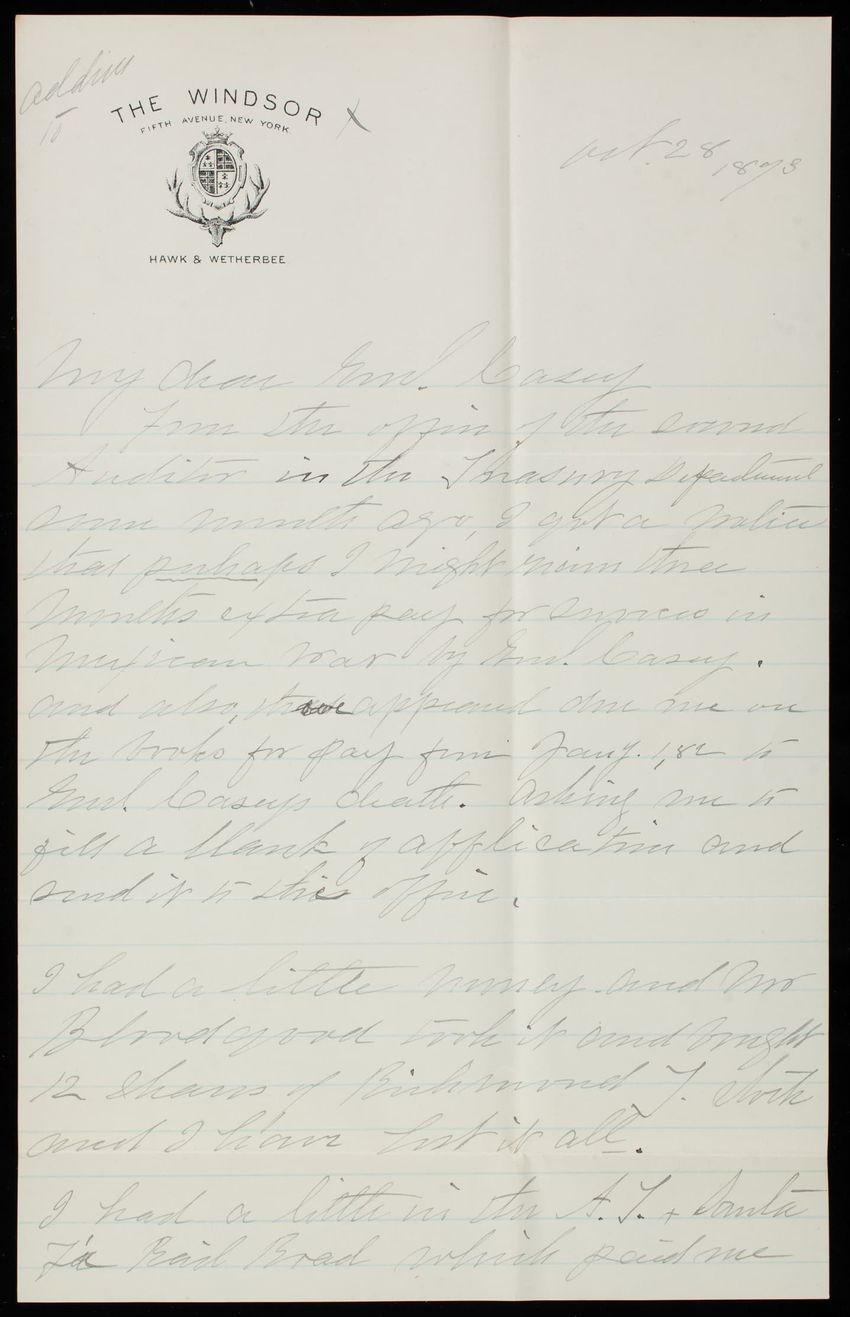 address
to
THE WINDSOR
FIFTH AVENUE, NEW YORK.
HAWK & WETHERBEE
Oct. 28, 1893
My dear Genl. Casey
From the office of the second
Auditor in the Treasury Department
some months ago, I got a notice
that perhaps I might claim three
months extra pay for services in
Mexican War by Genl. Casey.
and also, there appeared due me on
the books for pay from Jany. 1, 82 to
Genl. Caseys death. Asking me to
fill a blank of application and
send it to this office.
I had a little money and Mr
Bloodgood took it and bought
12 Shares of Richmond T. Stock
and I have lost it all.
I had a little in the A. T. + Santa
Fa Rail Road which paid me